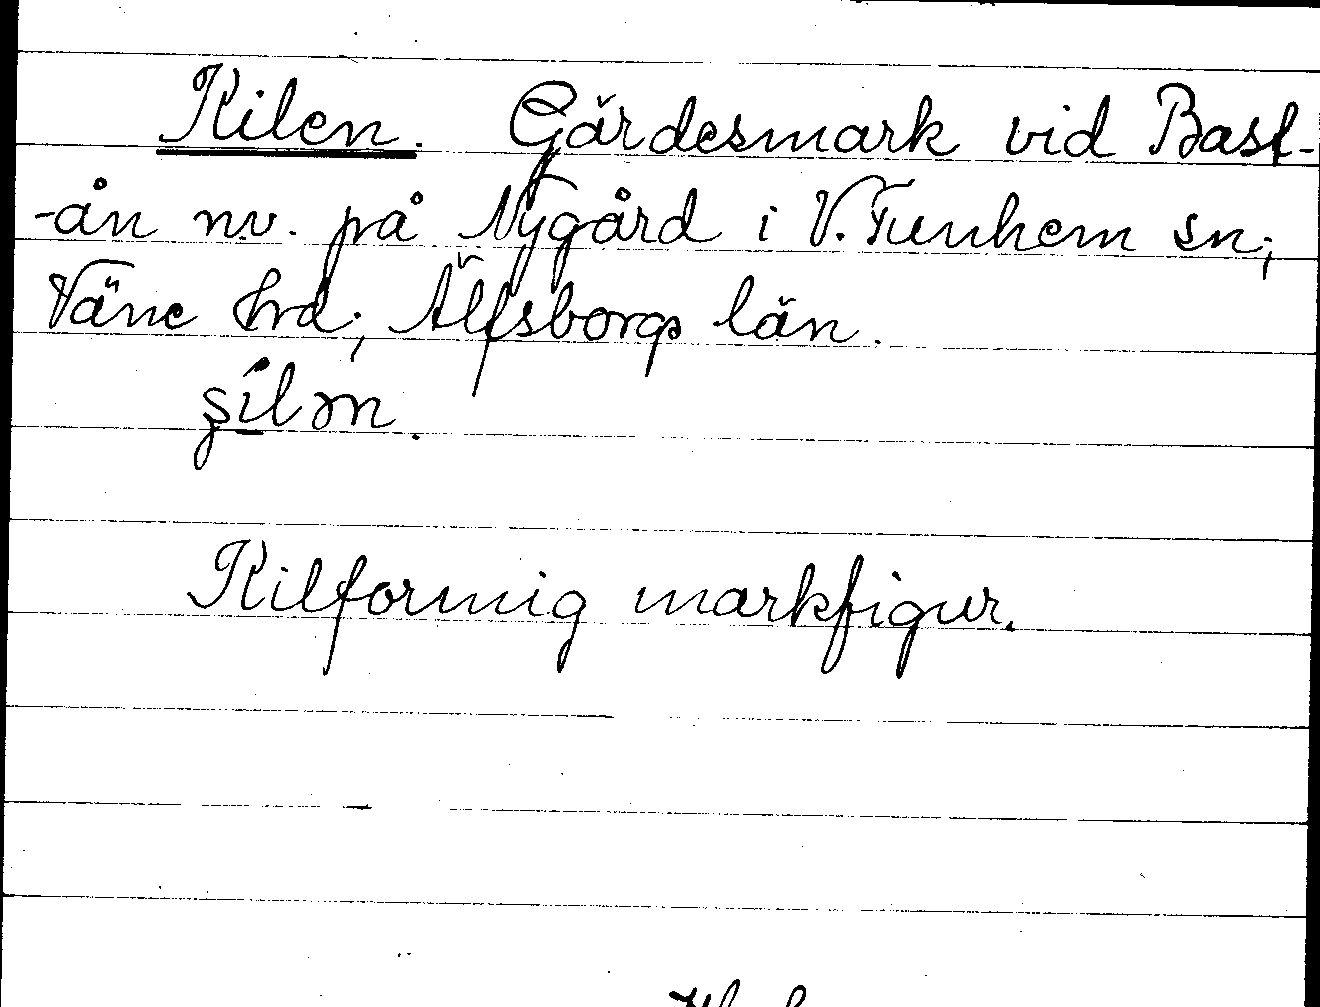 Kilen. Gärdesmark vid Bast-
-ån nv. på Nygård i V. Tunhem sn;
Väne hrd; Älfsborgs län.
Kilformig markfigur.